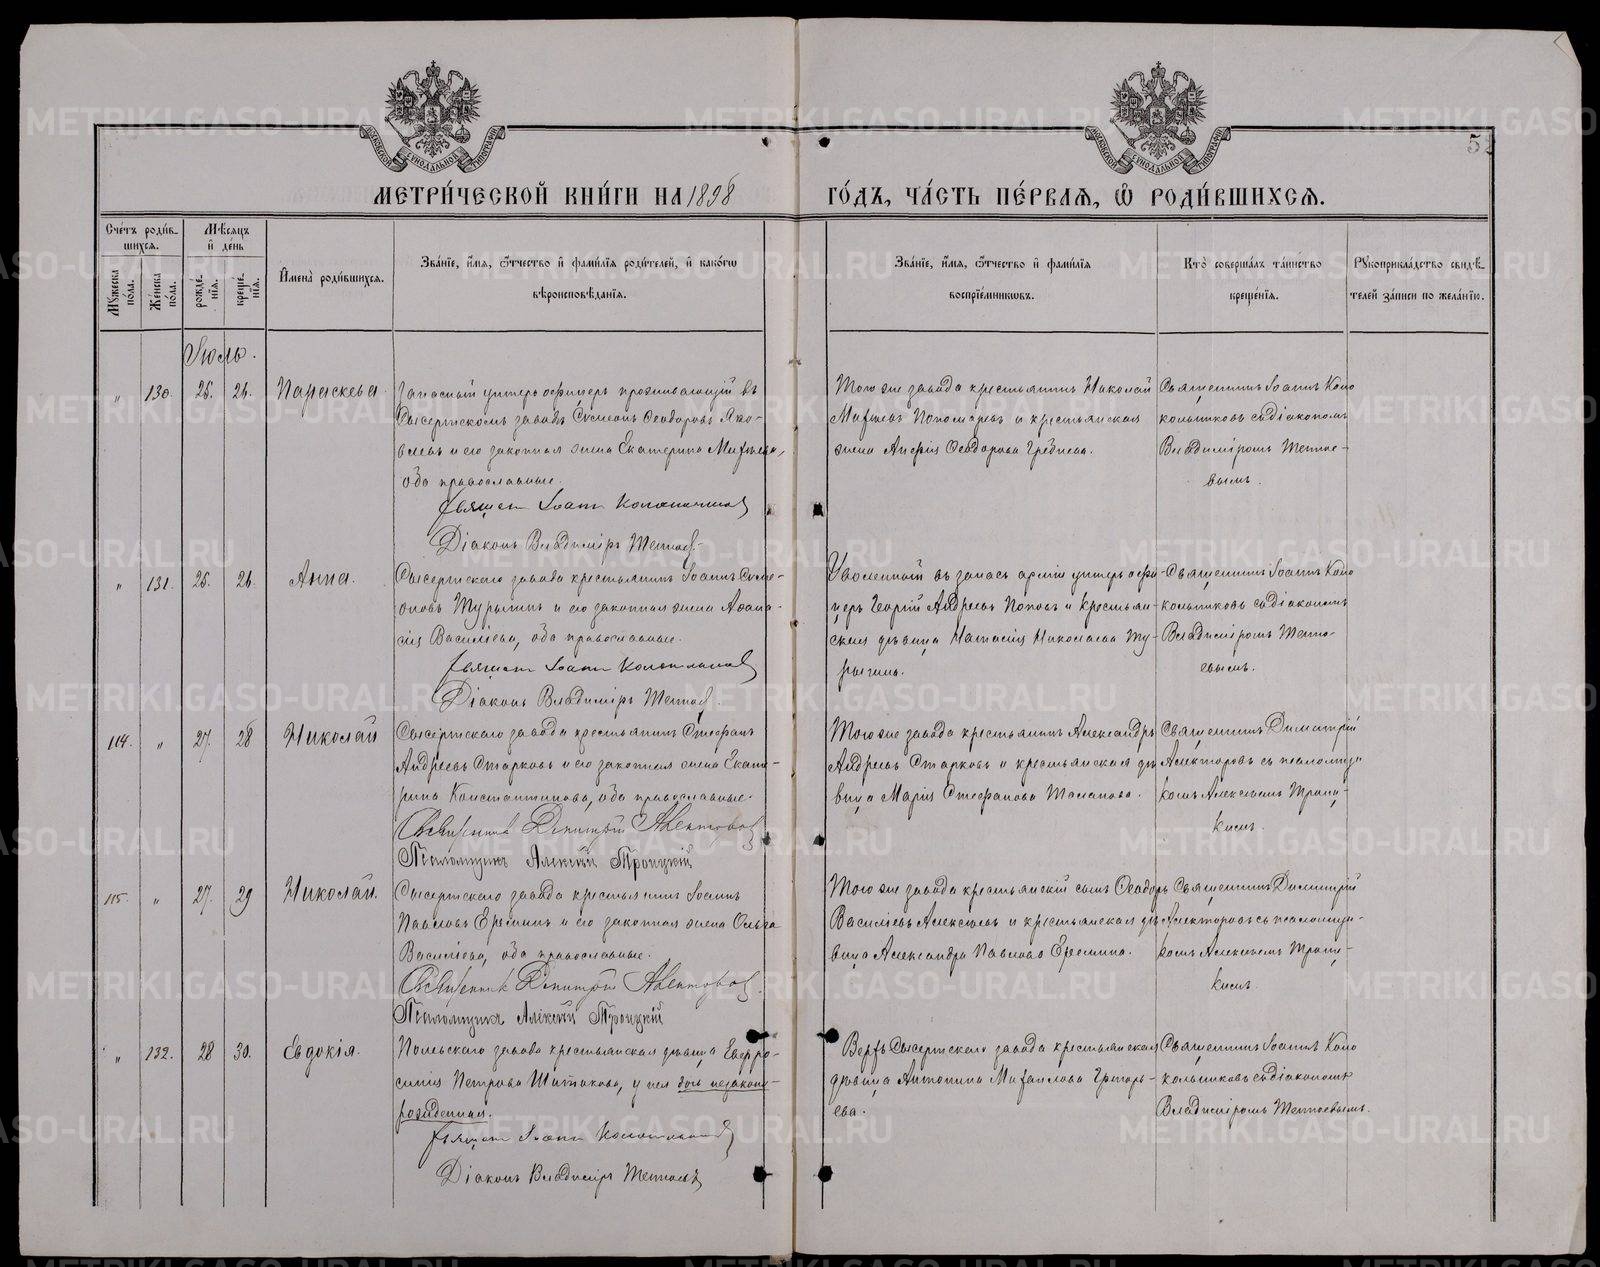 МЕТРИ́ЧЕСКОЙ КНИ́ГИ НА 1898 ГО́ДЪ, ЧА́СТЬ ПЕ́РВАЯ, Ѽ РОДИ́ВШИХСЯ.
5
Сче́тъ роди́вшихся.
Му́жеска по́ла.
Же́нска по́ла.
Мѣ́сяцъ и҆ де́нь
рожде́нїя.
креще́нїя.
И҆мена̀ роди́вшихся.
Зва́нїе, и҆́мя, ѻ҆́тчество и҆ фами́лїя роди́телей, и҆ како́гѡ
вѣроисповѣ́данїя.
Зва́нїе, и҆́мя, ѻ҆́тчество и҆ фами́лїя
воспрїе́мникѡвъ.
Кто̀ соверша́лъ та́инство
креще́нїя.
Рꙋкоприкла́дство свидѣ́-
телей за́писи по жела́нїю.
Іюль.
" 130. 25. 26. Параскева
Запасный унтеръ офицеръ проживающій въ
Сысертскомъ заводѣ Сѵмеонъ Ѳеодоровъ Яко-
влевъ и его законная жена Екатерина
оба православные.
Священ. Іоаннъ
Діаконъ Владиміръ
Того же завода крестьянинъ Николай
и крестьянская
жена Анфія Ѳеодорова
Священникъ Іоаннъ Коло
кольниковъ съ діакономъ
Владиміромъ
" 131. 25. 26. Анна.
Сысертскаго завода крестьянинъ Іоаннъ Сѵме-
оновъ Турыгинъ и его законная жена Аѳана-
сія Василіева, оба православные.
Священ. Іоаннъ
Діаконъ Владиміръ
Уволенный въ запасъ арміи унтеръ офи-
церъ Георгій Андреевъ Поповъ и крестьян-
ская дѣвица Наталія Николаева Ту-
рыгина.
Священникъ Іоаннъ Коло
кольниковъ съ діакономъ
Владиміромъ
114. " 27. 28 Николай
Сысертскаго завода крестьянинъ Стефанъ
Андреевъ Старковъ и его законная жена Екате-
рина Константинова, оба православные.
Священникъ Димитрій Алекторовъ
Псаломщикъ Алексѣй Троицкій
Того же завода крестьянинъ Александръ
Андреевъ Старковъ и крестьянская дѣ
вица Марія Стефанова
Священникъ Димитрій
Алекторовъ съ псаломщи
комъ Алексѣемъ Троиц-
кимъ.
115. " 27. 29 Николай.
Сысертскаго завода крестьянинъ Іоаннъ
Павловъ Ереминъ и его законная жена Ольга
Василіева, оба православные.
Священникъ Димитрій Алекторовъ.
Псаломщикъ Алексѣй Троицкій
Того же завода крестьянскій сынъ Ѳеодоръ
Василіевъ Алексѣевъ и крестьянская дѣ
вица Александра Павлова Еремина.
Священникъ Димитрій
Алекторовъ съ псаломщи-
комъ Алексѣемъ Троиц-
кимъ.
" 132. 28 30. Евдокія.
Полевскаго завода крестьянская дѣвица Евфро-
синія Петрова у нея дочь незаконно-
рожденная.
Священ. Іоаннъ
Діаконъ Владиміръ
Верхъ Сысертскаго завода крестьянская
дѣвица Антонина Михаилова Григорь-
ева.
Священникъ Іоаннъ Коло
кольниковъ съ діакономъ
Владиміромъ
METRIKI.GASO-URAL.RU